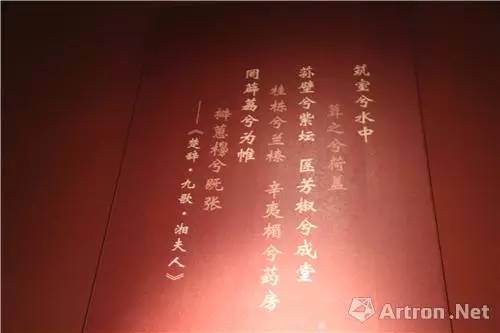 筑室兮水中
葺之兮荷盖
荪壁兮紫坛 芳椒兮成堂
桂栋兮兰橑 辛夷楣兮药房
罔薜荔兮为帷
擗蕙兮既张
——《楚辞·九歌·湘夫人》
Artron.Net